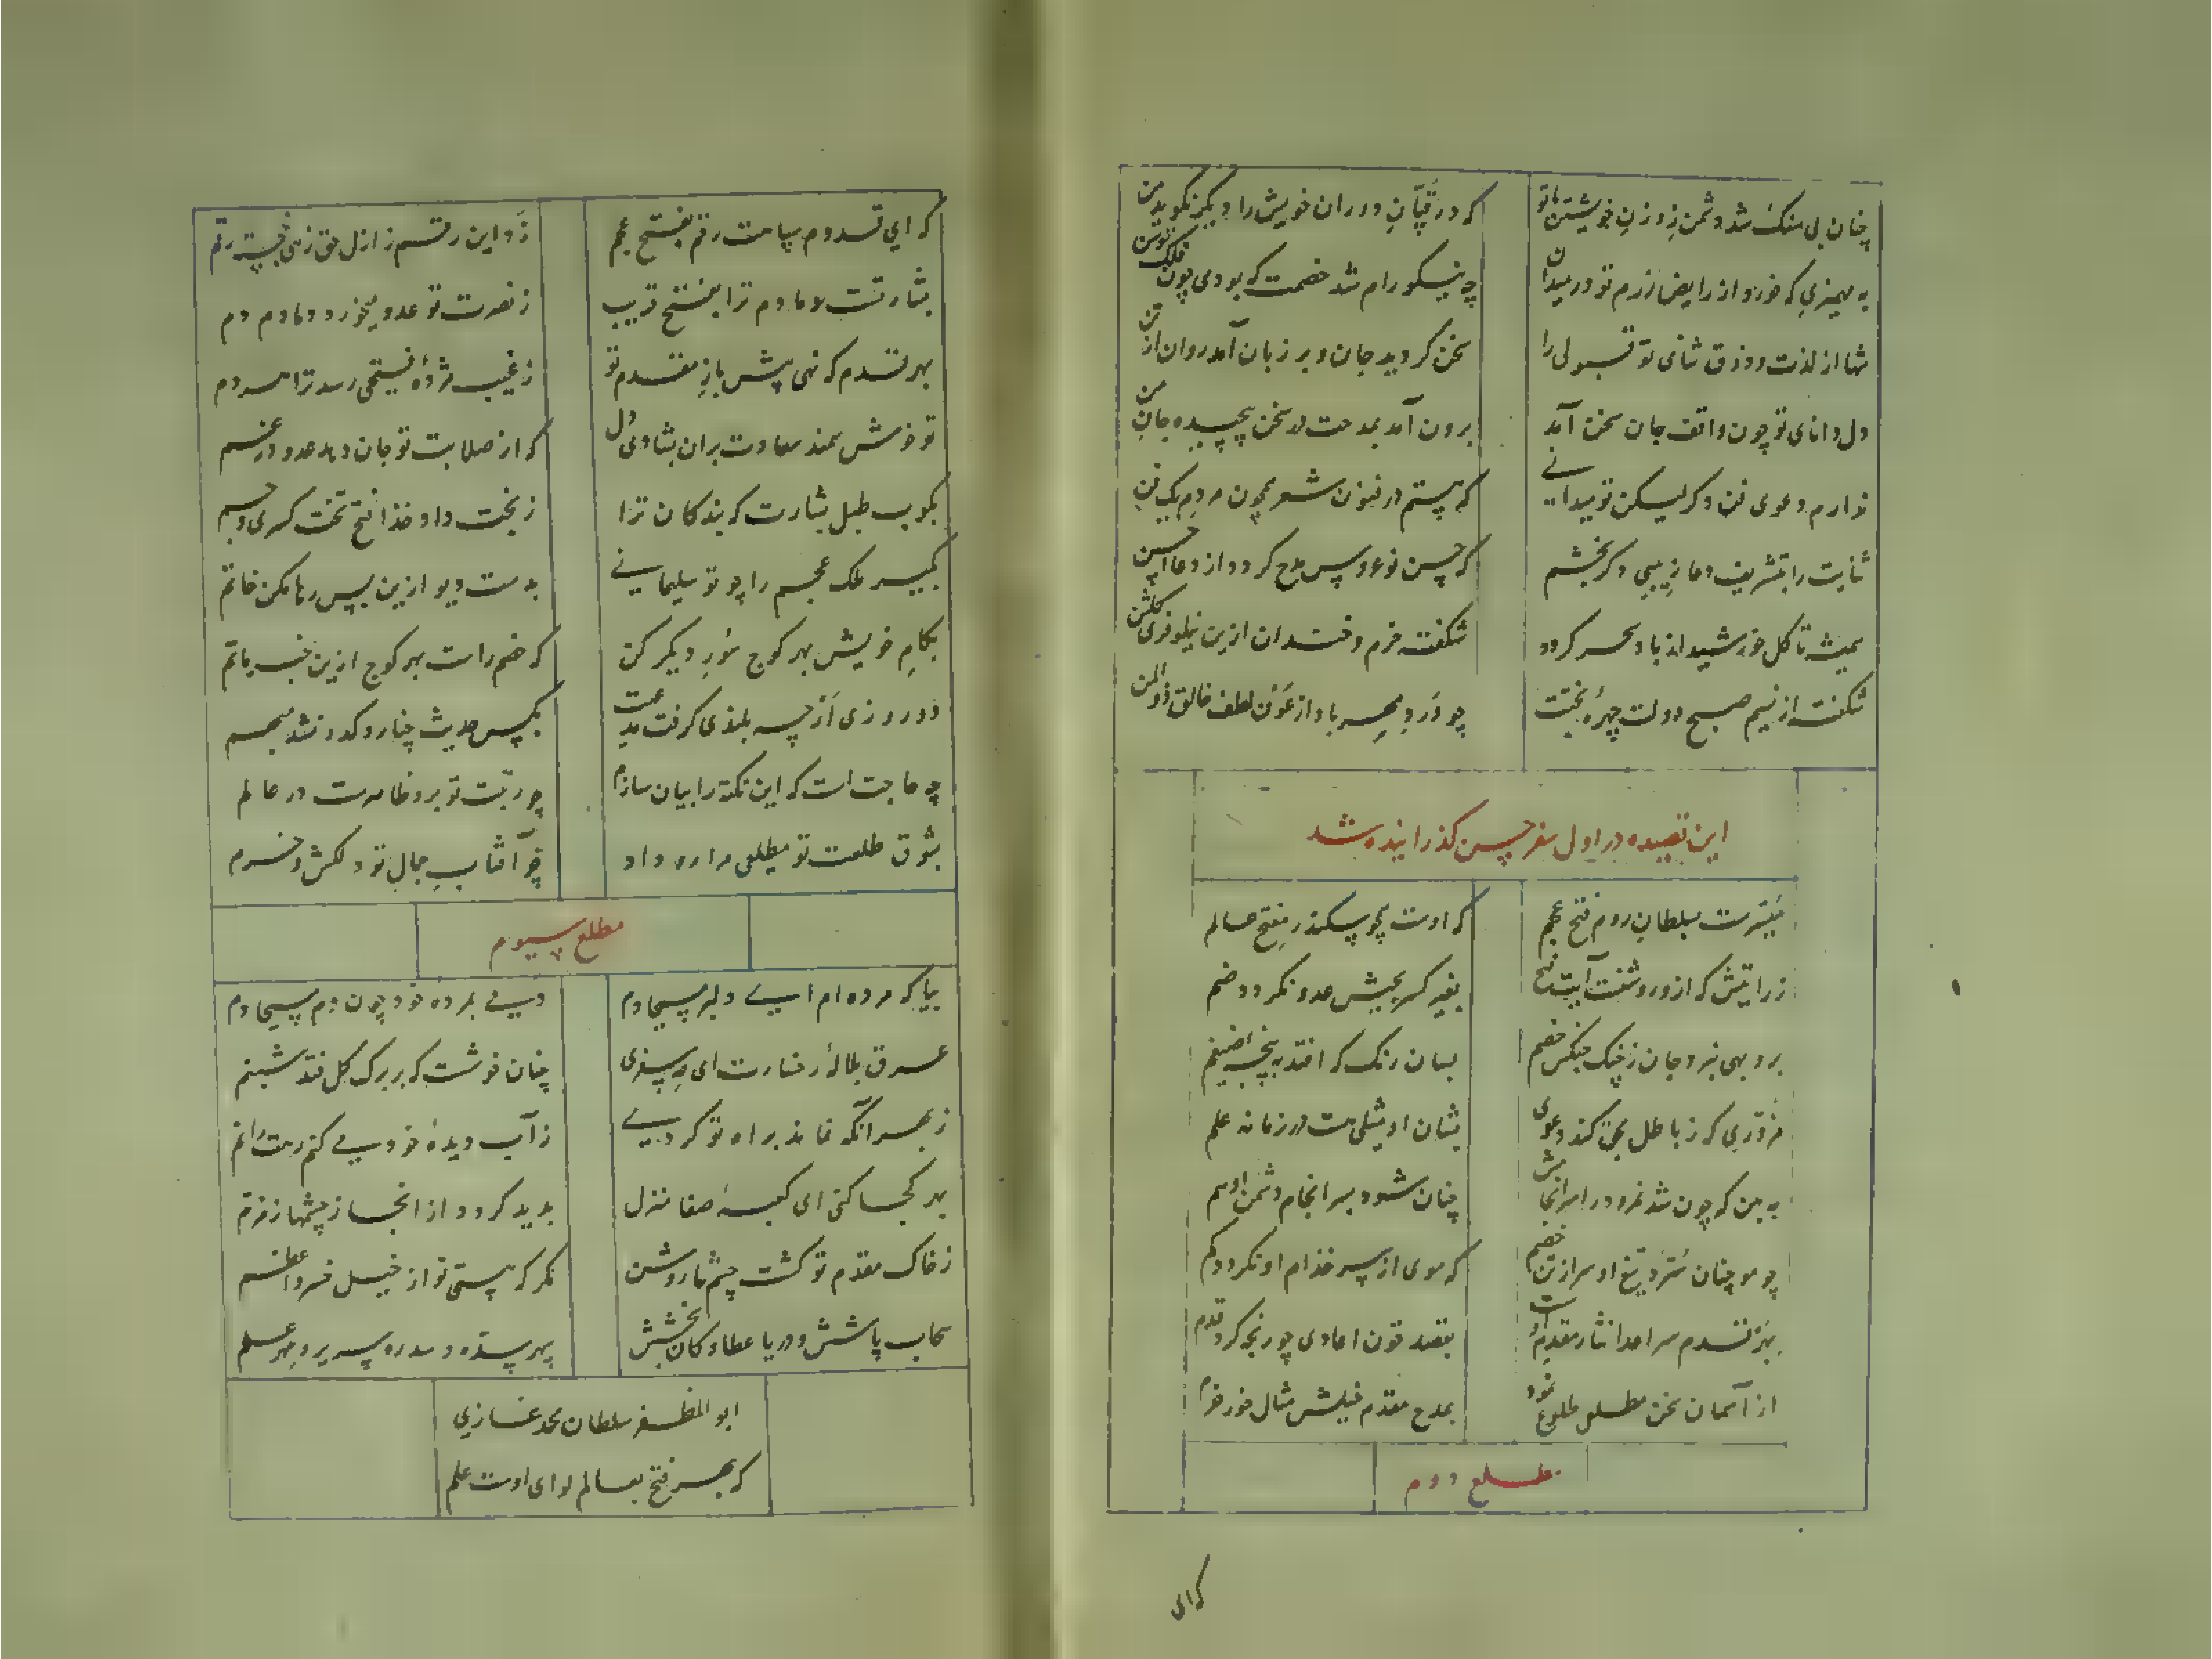 چنان بی سنگ شد دشمن ز وزن خویشتن با تو
که در قپان دوران خویش را دیگر نکوید من
به مهمیزی که خورد از رایض رزم تو در میدان
چه نیکو رام شد خصمت که بودی چون فلک توسن
شها از لذت و ذوق ثنای تو قبولی را
سخن کردید جان و بر زبان آمد روان از تن
دل دانای تو چون واقف جان سخن آمد
برون آمد بمدحت در سخن پیچیده جان من
ندارم دعوی فن دگر لیکن تو میدانی
که هستم در فنون شعر همچون مردم یک فن
ثنایت را بتشریف دعا زیبی دگر بخشم
که حسن نوعروس مدح کردد از دعا احسن
همیشه تا گل خورشید از باد سحر کردد
شکفته خرم و خندان ازین نیلوفری گلشن
شکفته از نسیم صبح دولت چهرهٔ بختت
چو ورد مهر باد از عون لطف خالق ذوالمن
این قصیده در اول سفر حسن گذرانیده شد
میسرست بسلطان روم فتح عجم
که اوست همچو سکندر مفتح عالم
ز رایتش که ازو روشنست آیت فتح
بغیر کسر بجیش عدو نکردد ضم
برد بهی نبرد جان ز چنگ جنگش خصم
بسان رنگ که افتد به پنجهٔ ضیغم
مزوری که ز باطل بحق کند دعوی
نشان او مثلی هست در زمانه علم
به بین که چون شد نمرود را سرانجامش
چنان شود بسرانجام دشمن او هم
چو مو چنان سترد تیغ او سر از تن خصم
که موی از سر خدام او نکردد کم
بهر قدم سر اعدا نثار مقدم اوست
بقصد خون اعادی چو رنجه کرد قدم
از آسمان سخن مطلعی طلوع نمود
بمدح مقدم خیلش مثال خور خرم
مطلع دوم
کای
که ای قدوم سپاهت رقم بفتح عجم
زد این رقم ز ازل حق زهی خجسته رقم
بشارتست دمادم ترا بفتح قریب
ز نصرت تو عدو میخورد دمادم دم
بهر قدم که نهی پیش باز مقدم تو
ز غیب مژدهٔ فتحی رسد ترا هر دم
تو خوش سمند سعادت بران بشادی دل
که از صلابت تو جان دهد عدو در غم
بکوب طبل بشارت که بندگان ترا
ز بخت داد خدا فتح تخت کسری و جم
بگیر ملک عجم را چو تو سلیمانی
بدست دیو ازین پس رها مکن خاتم
بکام خویش بهر کوچ سور دیگر کن
که خصم راست بهر کوچ ازین خبر ماتم
دو روزی از چه بلندی گرفت بدعت
بکس حدیث چنار و کدو نشد مبهم
چه حاجت است که این نکته را بیان سازم
چو رتبت تو برو ظاهرست در عالم
بشوق طلعت تو مطلعی مرا رو داد
چو آفتاب جمال تو دلکش و خرم
مطلع سیوم
بیا که مرده ام ای دلبر مسیحا دم
دمی بمرده خود چون دم مسیحا دم
عرق بلالهٔ رخسارت ای مه سفری
چنان خوشت که بر برک کل فتد شبنم
ز بهر آنکه نماند براه تو کردی
ز آب دیدهٔ خود می کنم رهت را نم
بهر کجا کنی ای کعبهٔ صفا منزل
بدید کردد از انجا ز چشمها زمزم
ز خاک مقدم تو کشت چشم ما روشن
مکر که هستی تو از خیل خسرو اعظم
سحاب پاشش و دریا عطا و کان بخشش
سپهر سده و سدره سریر و مهر علم
ابو المظفر سلطان محمد غازی
که بهر فتح بعالم لوای اوست علم